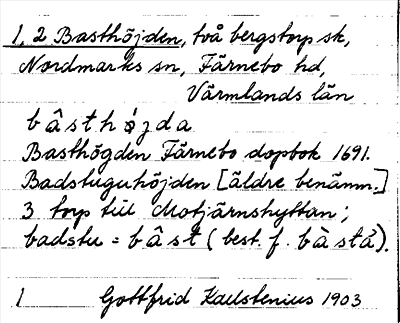 1, 2 Basthöjden, två bergstorp sk,
Nordmarks sn, Färnebo hd,
Värmlands län
b â s t h ó j d a
Basthögden Färnebo dopbok 1691.
Badstuguhöjden [äldre benämn.]
3 torp till Motjärnshyttan;
badstu = b â s t ( best. f. b à s t á ).
1 Gottfrid Kallstenius 1903